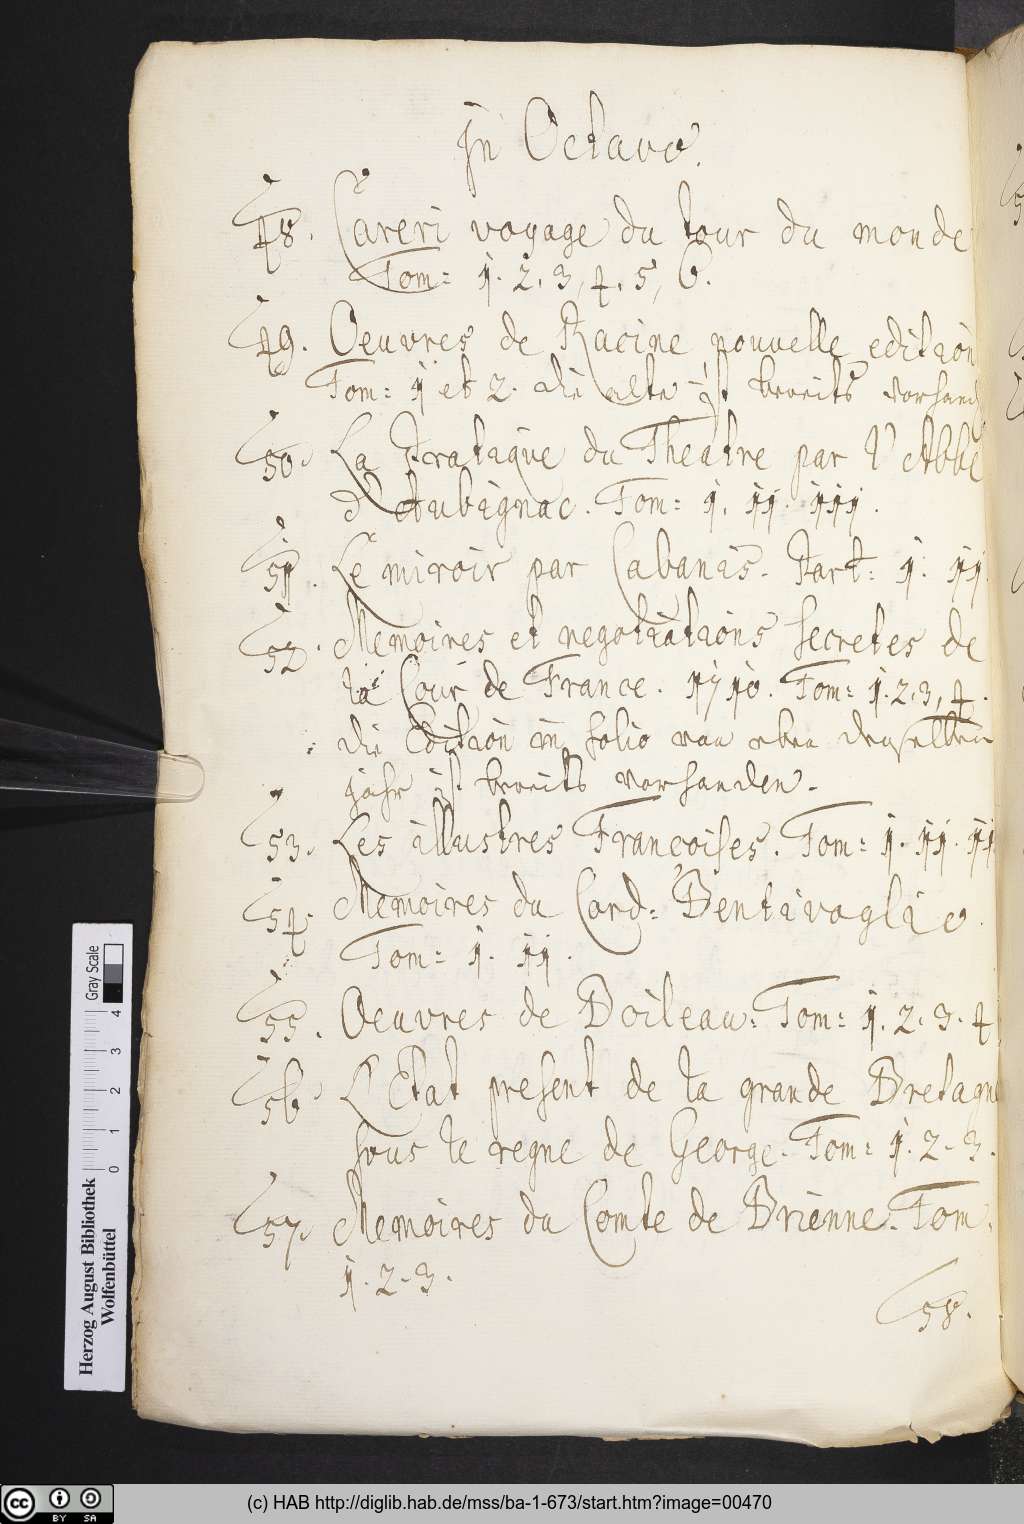 In Octavo.
48. Careri voyage du tour du monde
Tom: 1. 2. 3, 4. 5, 6.
49. Oeuvres de Racine nouvelle edition
Tom: 1 et 2. die alte ist bereits vorhand
50. La Pratique du Theatre par l'Abbé
d'Aubignac. Tom: 1. 11. 111.
51. Le miroir par Cabanis. Part: 1. 11.
52. Memoires et negotiations secretes de
la Cour de France. 1710. Tom: 1. 2. 3, 4.
die Edition in folio von eben denselben
jahr ist bereits vorhanden.
53. Les illustres Francoises. Tom: 1. 11. 11
54. Memoires du Card: Bentivoglio.
Tom: 1. 11.
55. Oeuvres de Boileau. Tom: 1. 2. 3. 4
56. L'Etat present de la grande Bretagne
sous le regne de George. Tom: 1. 2. 3.
57. Memoires du Comte de Brienne. Tom.
1. 2. 3.
58.
Gray Scale
0 1 2 3 4
Herzog August Bibliothek
Wolfenbüttel
cc BY SA
(c) HAB http://diglib.hab.de/mss/ba-1-673/start.htm?image=00470